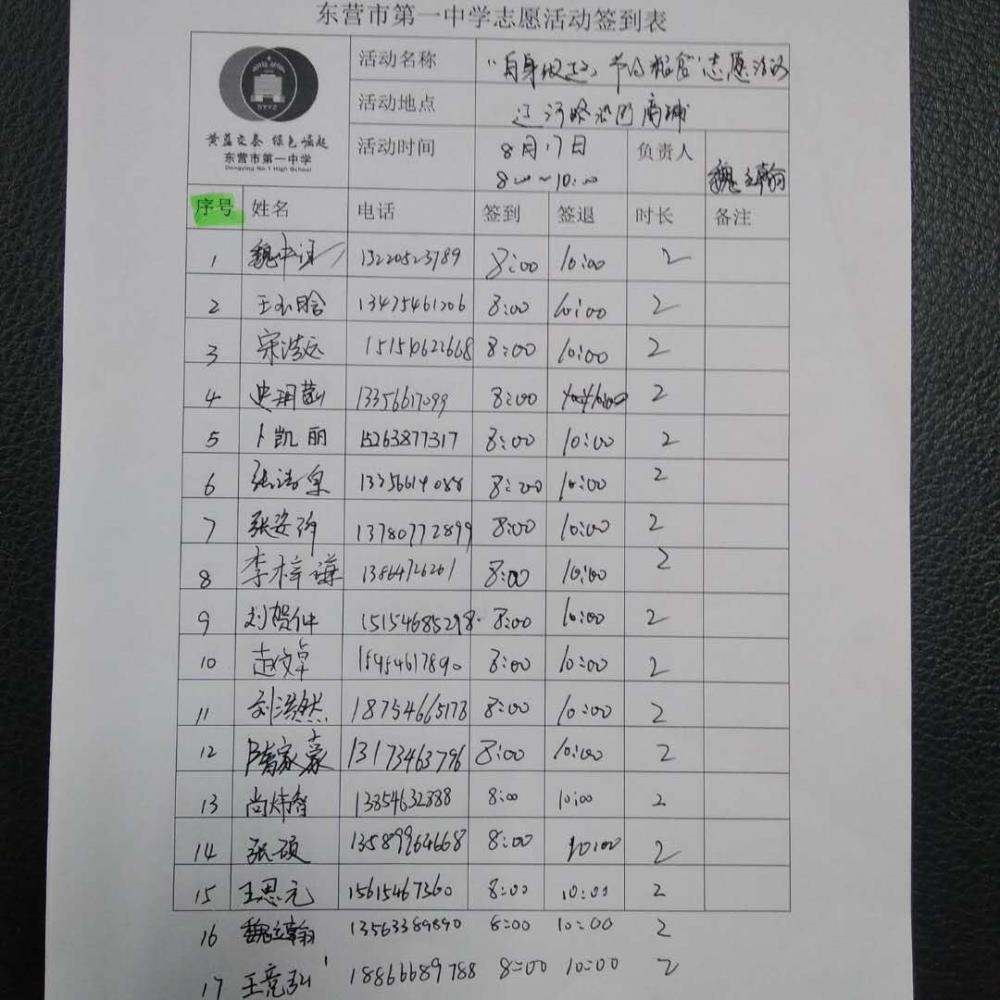 东营市第一中学志愿活动签到表
活动名称 "自身做起,节约粮食"志愿活动
活动地点 辽河路沿街商铺
黄蓝交泰 绿色崛起
东营市第一中学
Dongying No.1 High School
活动时间 8月17日 8:00~10:00 负责人 魏立翰
序号 姓名 电话 签到 签退 时长 备注
1 13220523789 8:00 10:00 2
2 王玉晗 13475461206 8:00 10:00 2
3 宋浩运 15150622668 8:00 10:00 2
4 13356617099 8:00 10:00 2
5 卜凯丽 15263877317 8:00 10:00 2
6 13356614088 8:00 10:00 2
7 张姿妍 13780772899 8:00 10:00 2
8 李梓谦 13864726261 8:00 10:00 2
9 刘贺仲 15154685298 8:00 10:00 2
10 赵文卓 15954617890 8:00 10:00 2
11 刘浩然 18754665173 8:00 10:00 2
12 隋家豪 13173463796 8:00 10:00 2
13 尚炜智 13854632888 8:00 10:00 2
14 张硕 13589964668 8:00 10:00 2
15 王思元 15615467360 8:00 10:00 2
16 魏立翰 13563389890 8:00 10:00 2
17 王竞弘 18866689788 8:00 10:00 2